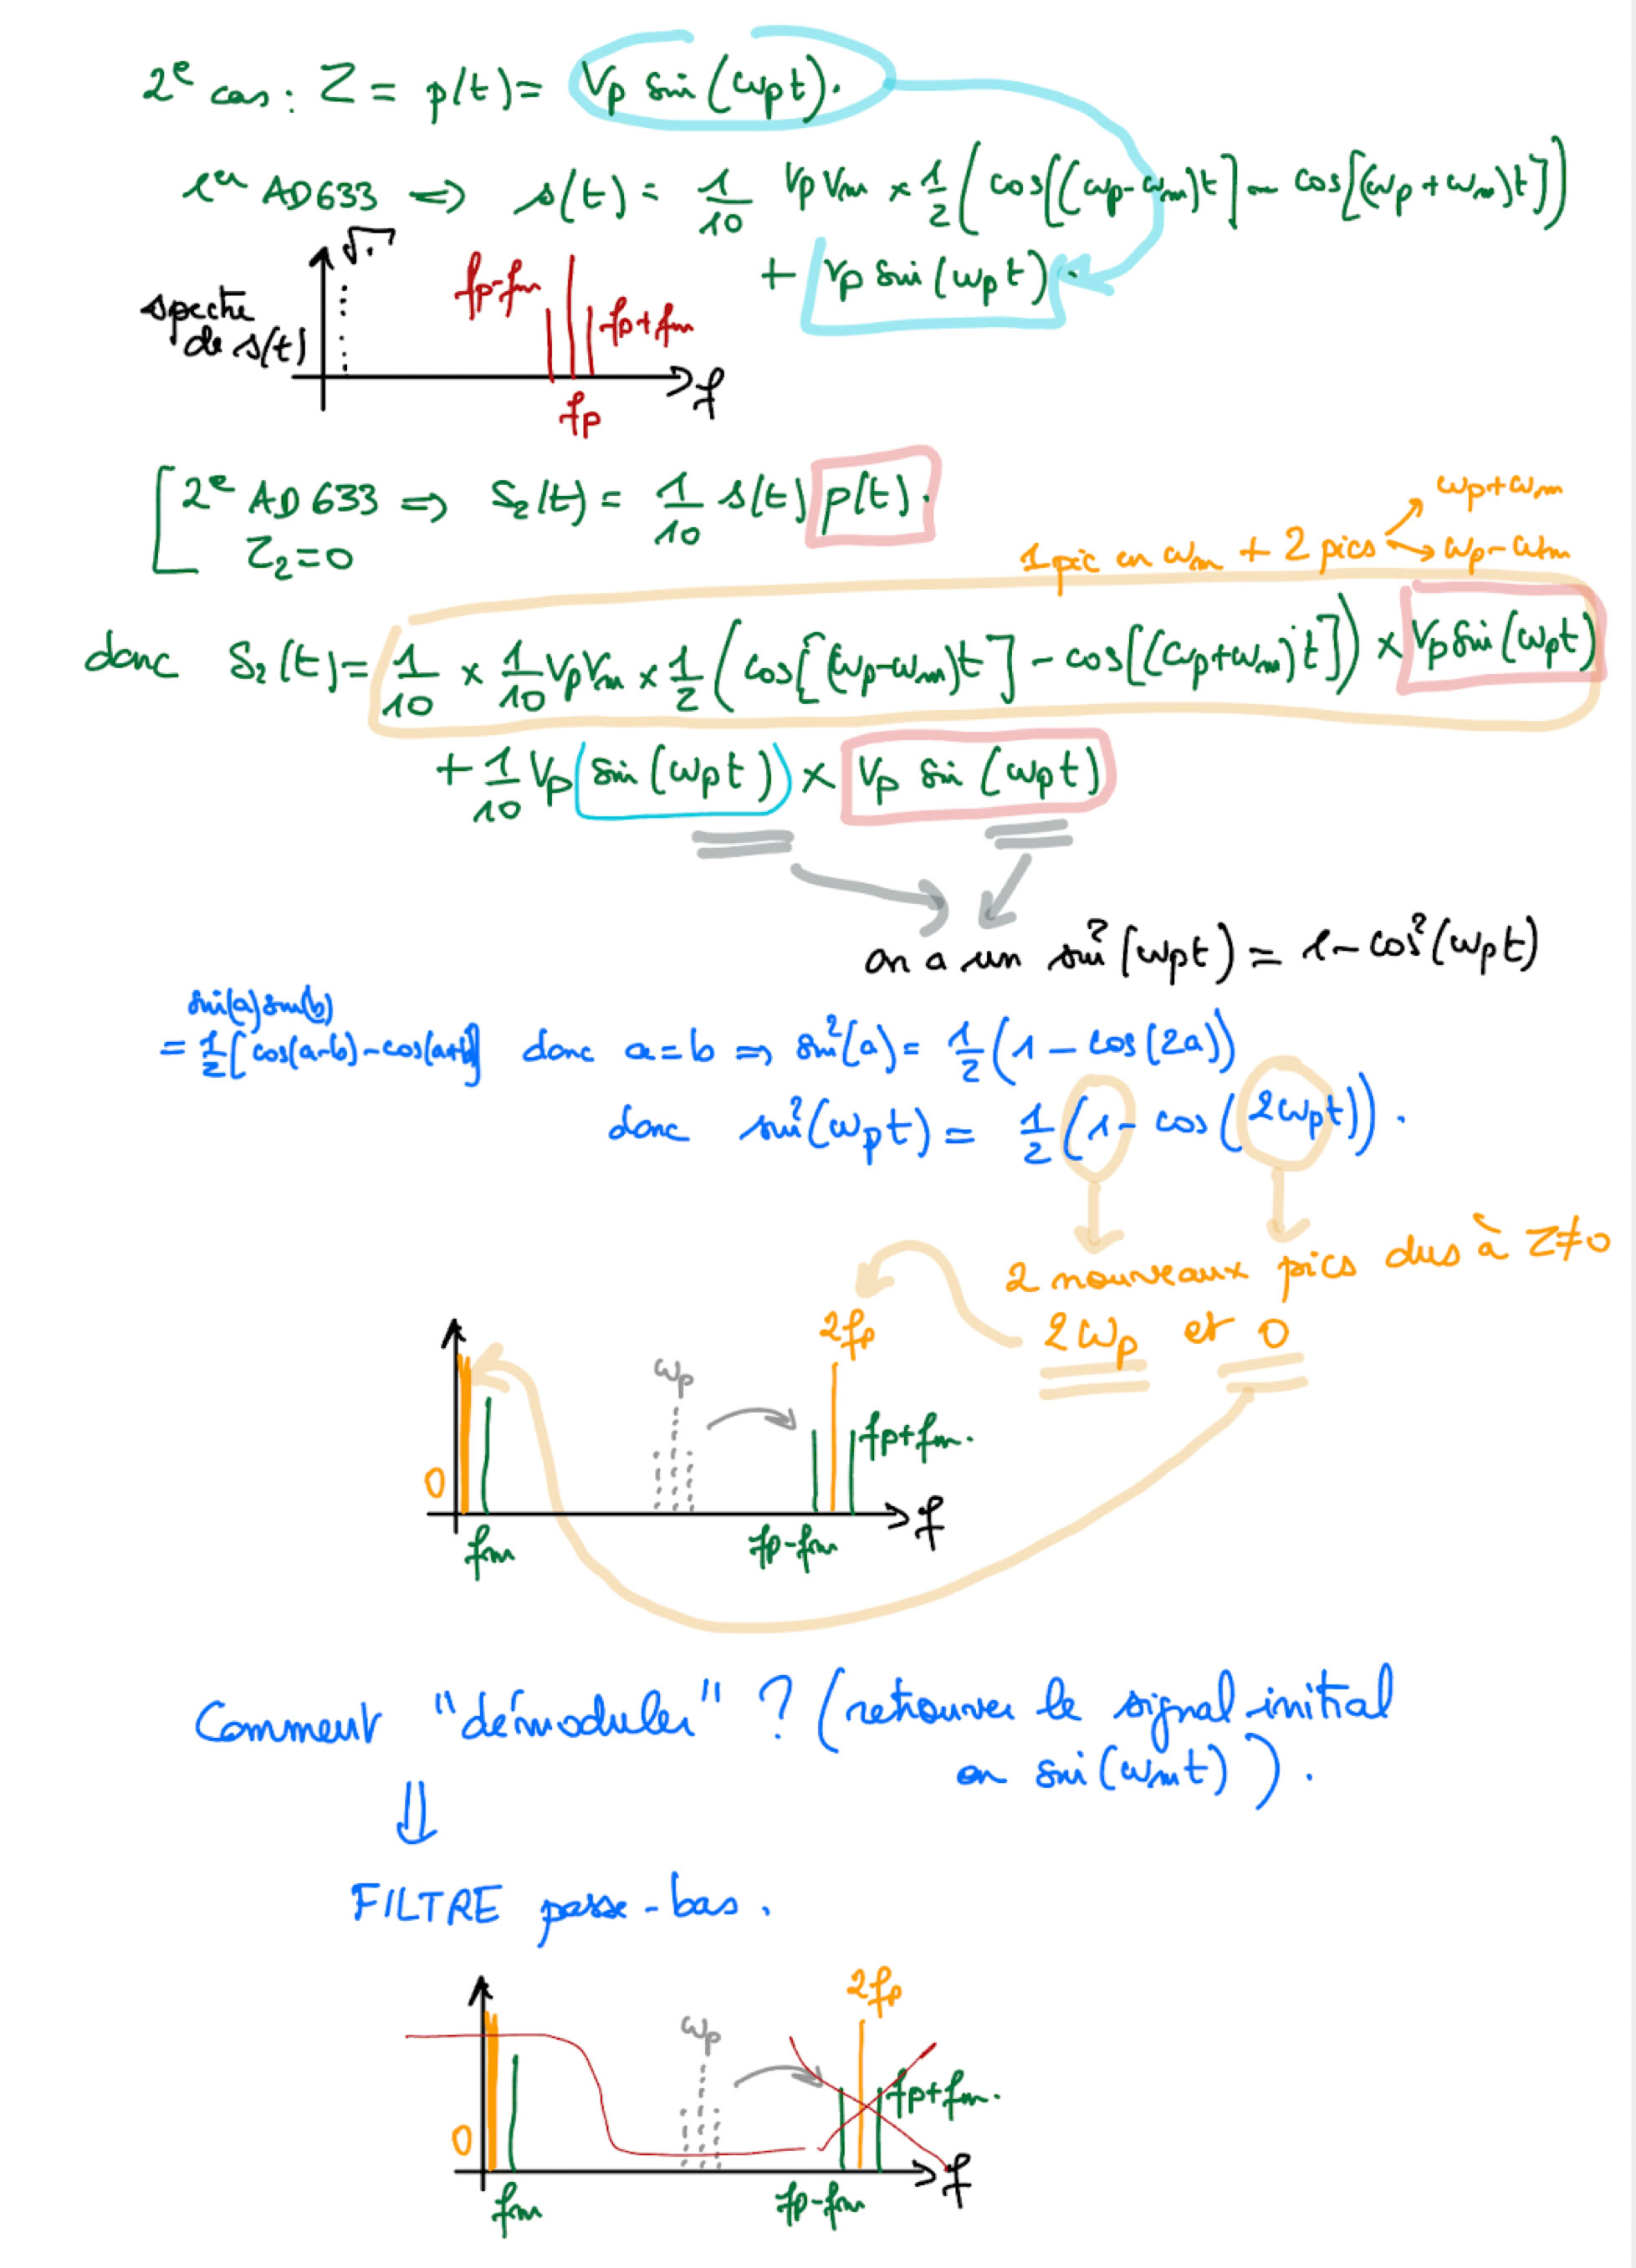 2e cas : Z = p(t) = Vp sin(ωpt).
1er AD633 ⇒ s(t) = 1/10 Vp Vm × 1/2 (cos[(ωp-ωm)t] - cos[(ωp+ωm)t])
+ Vp sin(ωpt).
spectre de s(t)
fp-fm
fp+fm
fp
f
2e AD633 ⇒ S2(t) = 1/10 s(t) p(t).
Z2=0
ωp+ωm
1 pic en ωm + 2 pics ωp-ωm
donc S2(t) = 1/10 × 1/10 VpVm × 1/2 (cos[(ωp-ωm)t] - cos[(ωp+ωm)t]) × Vp sin(ωpt)
+ 1/10 Vp sin(ωpt) × Vp sin(ωpt)
on a un sin²(ωpt) = 1-cos²(ωpt)
sin(a)sin(b)
= 1/2[cos(a-b)-cos(a+b)] donc a=b ⇒ sin²(a) = 1/2(1-cos(2a))
donc sin²(ωpt) = 1/2(1-cos(2ωpt)).
2 nouveaux pics dus à Z≠0
2ωp et 0
2fp
ωp
fp+fm.
0
f
fm
fp-fm
Comment "démoduler" ? (retrouver le signal initial
en sin(ωmt)).
⇓
FILTRE passe-bas.
2fp
ωp
fp+fm.
0
f
fm
fp-fm